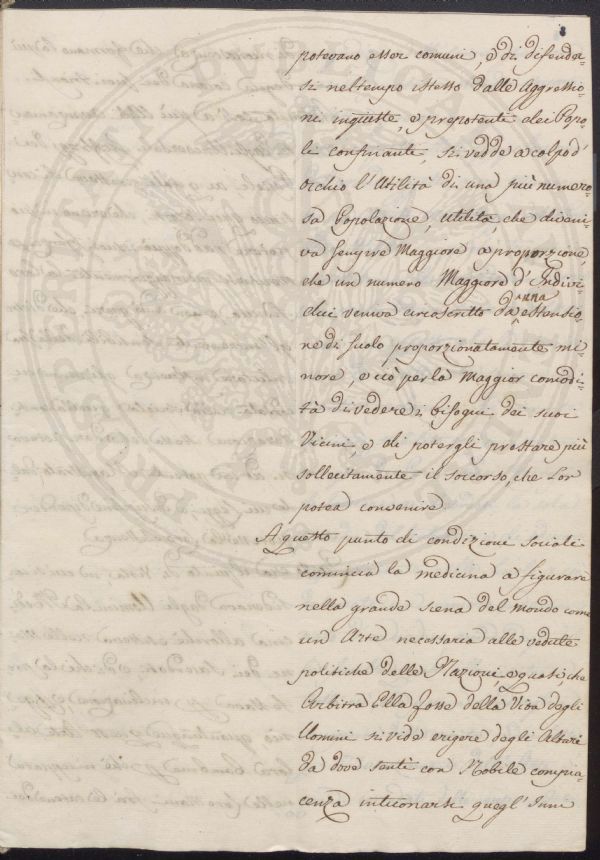 8
potevano esser comuni, e di difender=
si nel tempo istesso dalle Aggressio=
ni ingiuste, e prepotenti dei Popo=
li confinanti, si vedde a colpo d'
occhio l'Utilità di una più numero=
sa Popolazione, utilità, che diveni=
va sempre Maggiore a proporzione,
che un numero Maggiore d'Indivi=
dui veniva circoscritto da una estensio=
ne di suolo proporzionatamente mi=
nore, e ciò per la Maggior comodi=
tà di vedere i bisogni dei suoi
Vicini, e di potergli prestare più
sollecitamente il soccorso, che Lor
potea convenire
A questo punto di condizioni sociali
comincia la medicina a figurare
nella grande scena del mondo come
un Arte necessaria alle vedute
politiche delle Nazioni, e quasi, che
Arbitra Ella fosse della Vita degli
Uomini si vide erigere degli Altari
da dove sentì con Nobile compia=
cenza intuonarsi quegl'Inni